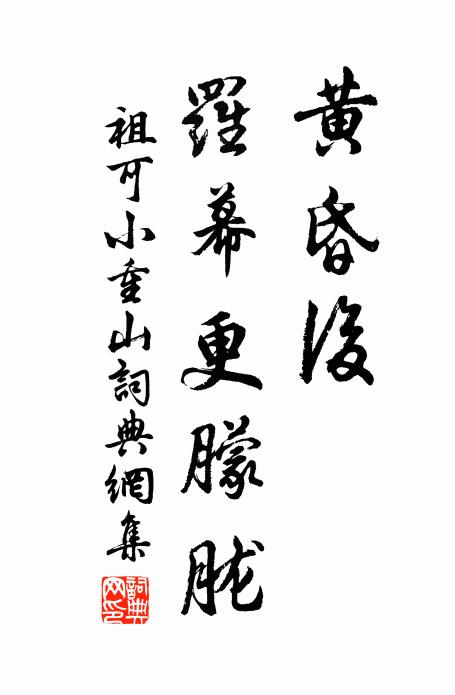 黄昏後
羅幕更朦朧
祖可小重山詞典網集
詞典网印